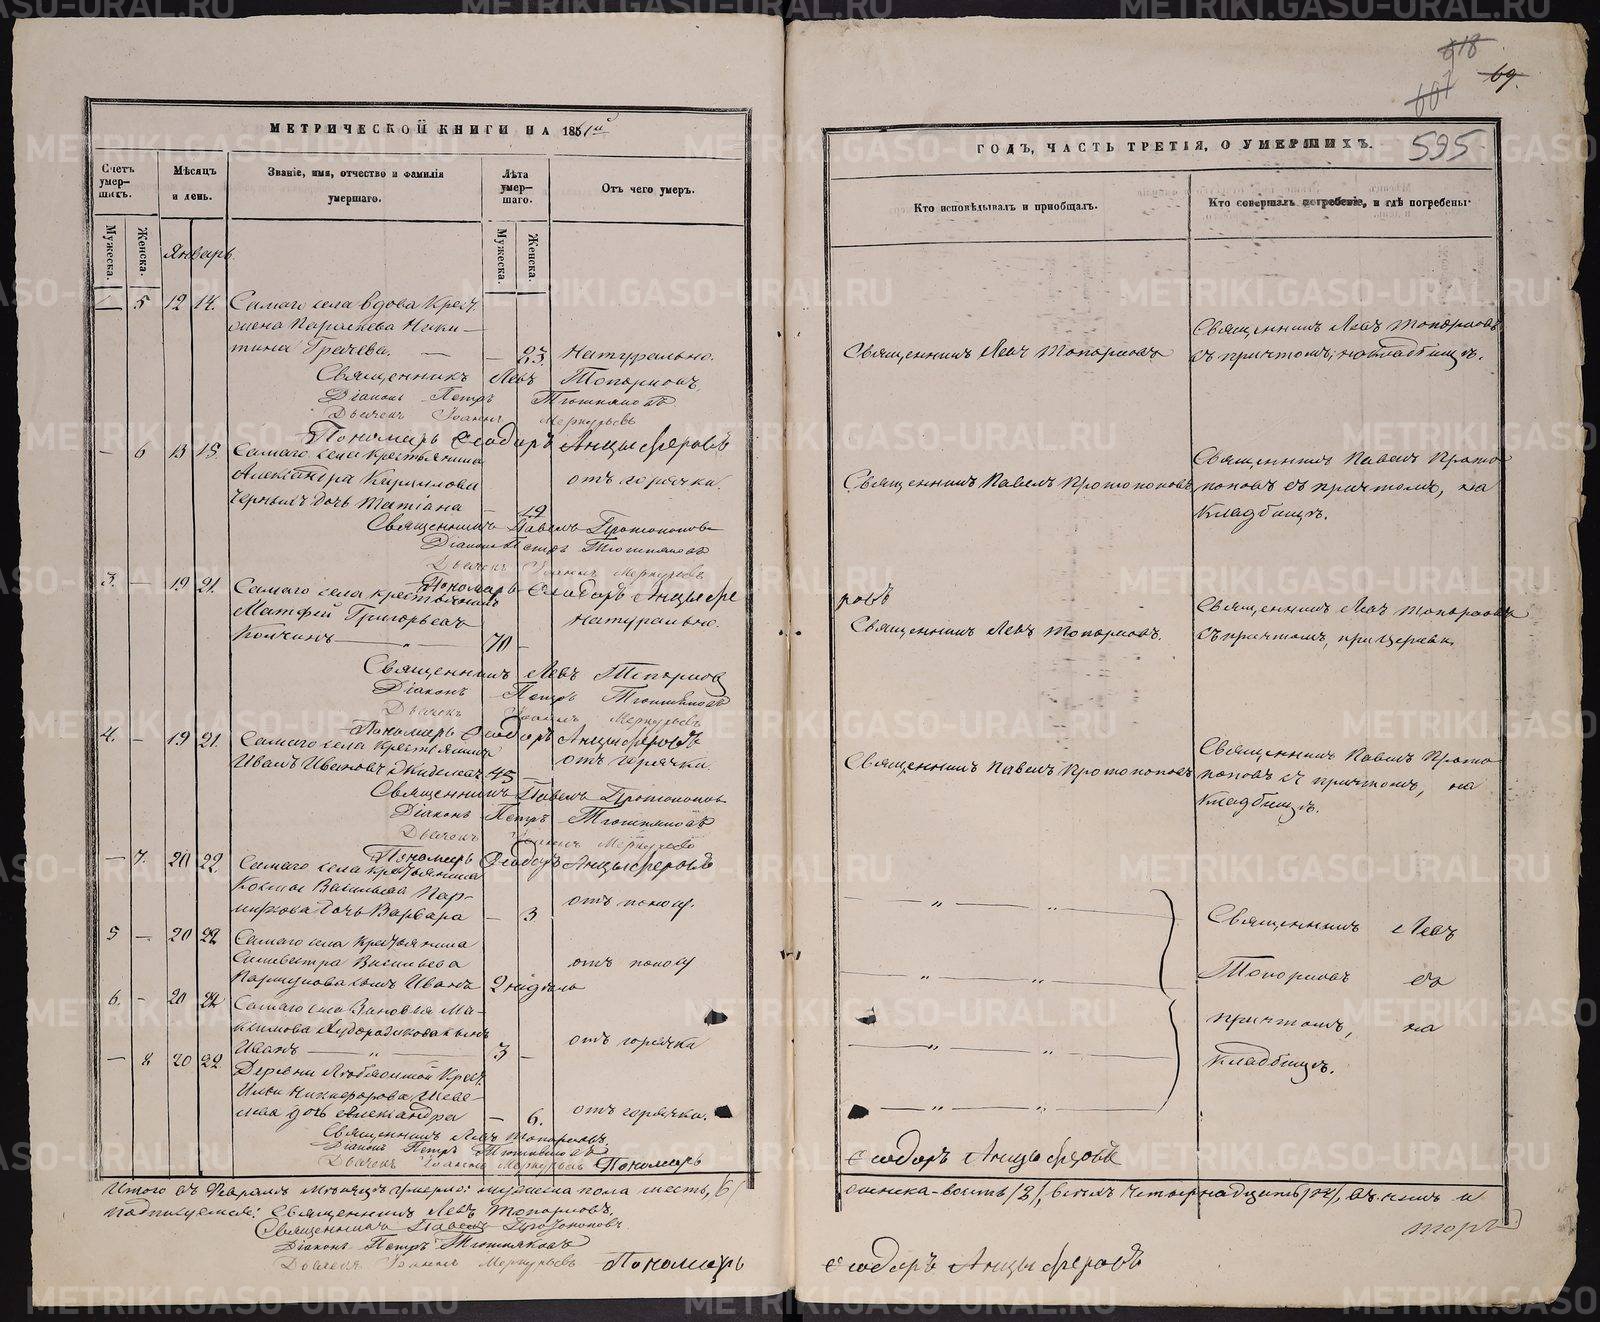 618
69.
601
МЕТРИЧЕСКОЙ КНИГИ НА 1861й
ГОДЪ, ЧАСТЬ ТРЕТІЯ, О УМЕРШИХЪ.
595
Счетъ умер-шихъ.
Мѣсяцъ и день.
Званіе, имя, отчество и фамилія умершаго.
Лѣта умер-шаго.
Отъ чего умеръ.
Кто исповѣдывалъ и пріобщалъ.
Кто совершалъ погребеніе, и гдѣ погребены.
Мужеска.
Женска.
Мужеска.
Женска.
Январь.
— 5 12 14. Самаго села вдова Крест.
Параскева Ники-
тина Грачева. — — 23. Натурально.
Священникъ Левъ Топорковъ
Священникъ Левъ Топорковъ
съ причтомъ, на кладбищѣ.
Священникъ Левъ Топорковъ,
Діаконъ Петръ
Дьячекъ Іоаннъ Меркурьевъ
Пономарь Ѳеодоръ Анцыферовъ
— 6 13 15. Самаго села крестьянина
Александра Кириллова
дочь Татіана — 19 отъ горячки.
Священникъ Павелъ Протопоповъ
Священникъ Павелъ Прото
поповъ съ причтомъ, на
кладбищѣ.
Священникъ Павелъ Протопоповъ
Діаконъ Петръ
Дьячекъ Іоаннъ Меркурьевъ
Пономарь Ѳеодоръ Анцыфе
ровъ
3. — 19 21. Самаго села крестьянинъ
Матфей Григорьевъ
70 — натурально.
Священникъ Левъ Топорковъ.
Священникъ Левъ Топорковъ
съ причтомъ, при церкви.
Священникъ Левъ Топорковъ
Діаконъ Петръ
Дьячекъ Іоаннъ Меркурьевъ
Пономарь Ѳеодоръ Анцыферовъ
4. — 19 21. Самаго села крестьянинъ
Иванъ Ивановъ 45 — отъ горячки.
Священникъ Павелъ Протопоповъ
Священникъ Павелъ Прото
поповъ съ причтомъ, на
кладбищѣ.
Священникъ Павелъ Протопоповъ
Діаконъ Петръ
Дьячекъ Іоаннъ Меркурьевъ
Пономарь Ѳеодоръ Анцыферовъ
— 7. 20 22 Самаго села крестьянина
Космы Васильева
дочь Варвара — 3 отъ поносу.
5 — 20 22 Самаго села крестьянина
Силивестра Васильева
сынъ Иванъ 2 недѣли отъ поносу
6. — 20 22 Самаго села Зиновья Ма-
ксимова сынъ
Иванъ — „ — 3 — отъ горячки
— 8 20 22 Деревни Крест.
Ильи Никифорова
дочь Александра — 6. отъ горячки.
Священникъ Левъ
Топорковъ съ
причтомъ, на
кладбищѣ.
Священникъ Левъ Топорковъ.
Діаконъ Петръ
Дьячекъ Іоаннъ Меркурьевъ Пономарь
Ѳеодоръ Анцыферовъ
Итого въ Февралѣ мѣсяцѣ умерло: мужеска пола шесть, /6/
женска — восемь /8/, всѣхъ четырнадцать /14/, въ чемъ и
подписуемся: Священникъ Левъ Топорковъ,
Священникъ Павелъ Протопоповъ.
Діаконъ Петръ
Дьячекъ Іоаннъ Меркурьевъ Пономарь
Ѳеодоръ Анцыферовъ
METRIKI.GASO-URAL.RU